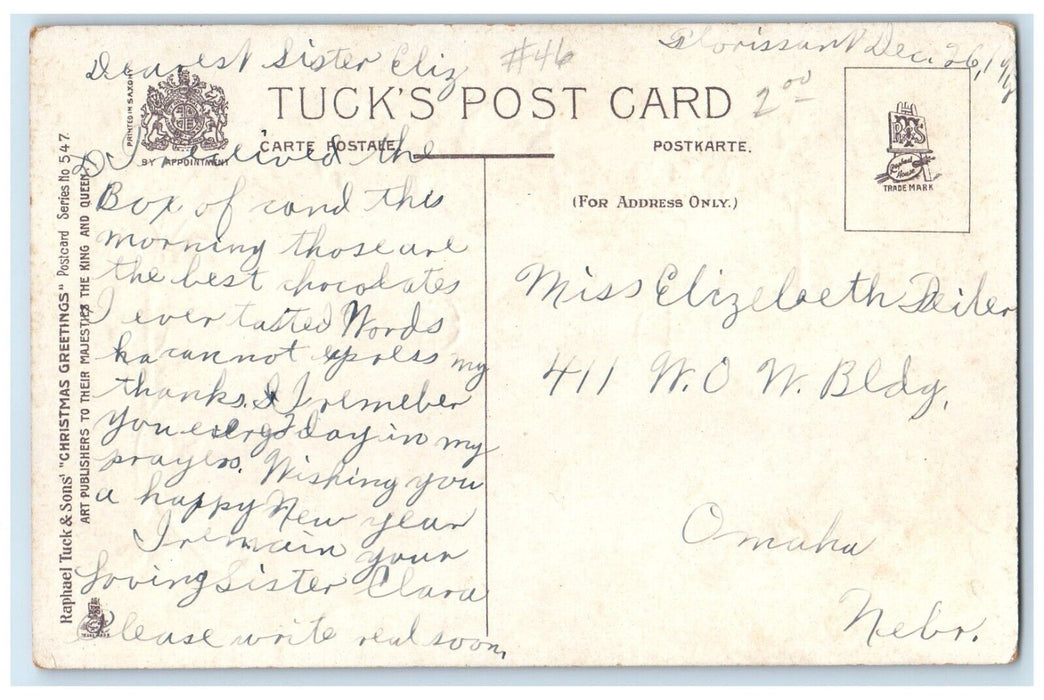 Florissant Dec. 26, 19
Dearest Sister Eliz
#46
2.00
TUCK'S POST CARD
CARTE POSTALE.
POSTKARTE.
(FOR ADDRESS ONLY.)
PRINTED IN SAXONY
BY APPOINTMENT
TRADE MARK
Raphael Tuck & Sons' "CHRISTMAS GREETINGS" Postcard Series No 547.
ART PUBLISHERS TO THEIR MAJESTIES THE KING AND QUEEN.
I received the
Box of cand this
morning those are
the best chocolates
I ever tasted Words
cannot express my
thanks. I remeber
you every day in my
prayers. Wishing you
a happy New year
I remain your
Loving Sister Clara
Please write real soon,
Miss Elizebeth
411 W. O W. Bldg,
Omaha
Nebr.